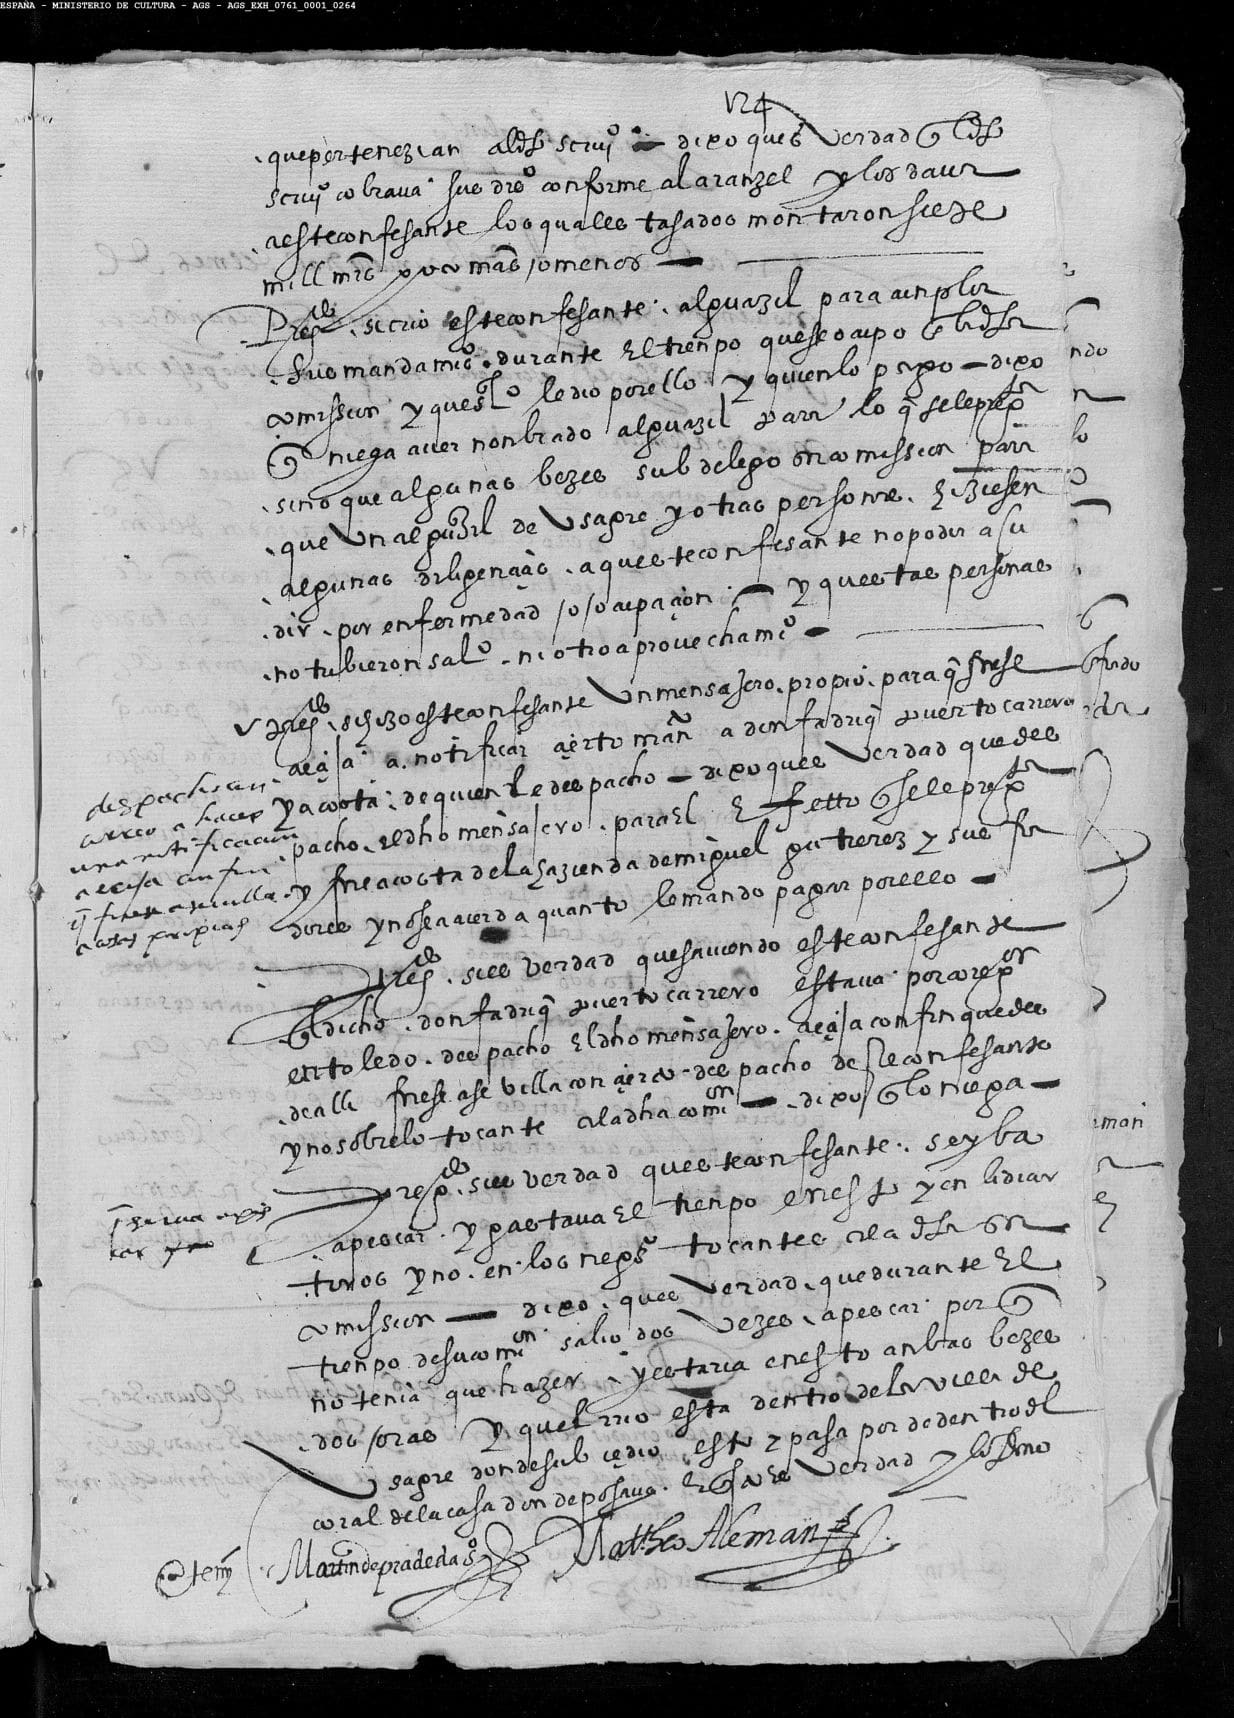 ESPAÑA - MINISTERIO DE CULTURA - AGS - AGS_EXH_0761_0001_0264
124
que pertenezian al dho scrivo dixo que es verdad quel dho
scrivo cobrava sus dros conforme al aranzel y los dava
a este confesante los quales tasados montaron siete
mill mrs poco mas o menos
Pregdo si crio este confesante alguazil para cunplir
sus mandamios durante el tienpo que se ocupo en la dha
comission y que salo le dio por ello y quien lo pago dixo
que niega aver nonbrado alguazil para lo q se le pregta
sino que algunas bezes subdelego su comission para
que un alguazil de Usagre y otras personas hiziesen
algunas diligençias a que este confesante no podia acu
dir por enfermedad o ocupaçion y que estas personas
no tubieron salo ni otro aprovechamio
Pregdo si hizo este confesante un mensajero propio para q fuese
a eçija a notificar çierto man a don fadriq puertocarrero
y a costa de quien le despacho dixo que es verdad que des
pacho el dho mensajero para el efetto que se le pregta
y fue a costa de la hazienda de miguel gutierrez y sus fia
dores y no se acuerda quanto le mando pagar por ello
despachó un
correo a hacer
una notificacion
a ecija con fin
q fuese a sevilla a
cosas propias
Pregdo si es verdad que saviendo este confesante
quel dicho don fadriq puertocarrero estava por corregor
en toledo despacho el dho mensajero a eçija con fin que des
de alli fuese a sevilla con çierto despacho deste confesante
y no sobre lo tocante a la dha comion dixo que lo niega
Pregdo si es verdad que este confesante se yba
a pescar y gastava el tienpo en esto y en lidiar
toros y no en los negos tocantes a la dha su
comission dixo que es verdad que durante el
tienpo de su comion salio dos vezes a pescar por que
no tenia que hazer y estaria en esto anbas bezes
dos oras y quel rio esta dentro de la villa de
Usagre donde subçedio esto y pasa por de dentro del
coral de la casa donde posava. Esto es verdad y lo firmo
Matheo Aleman
Ante my
Martin de pradeda so